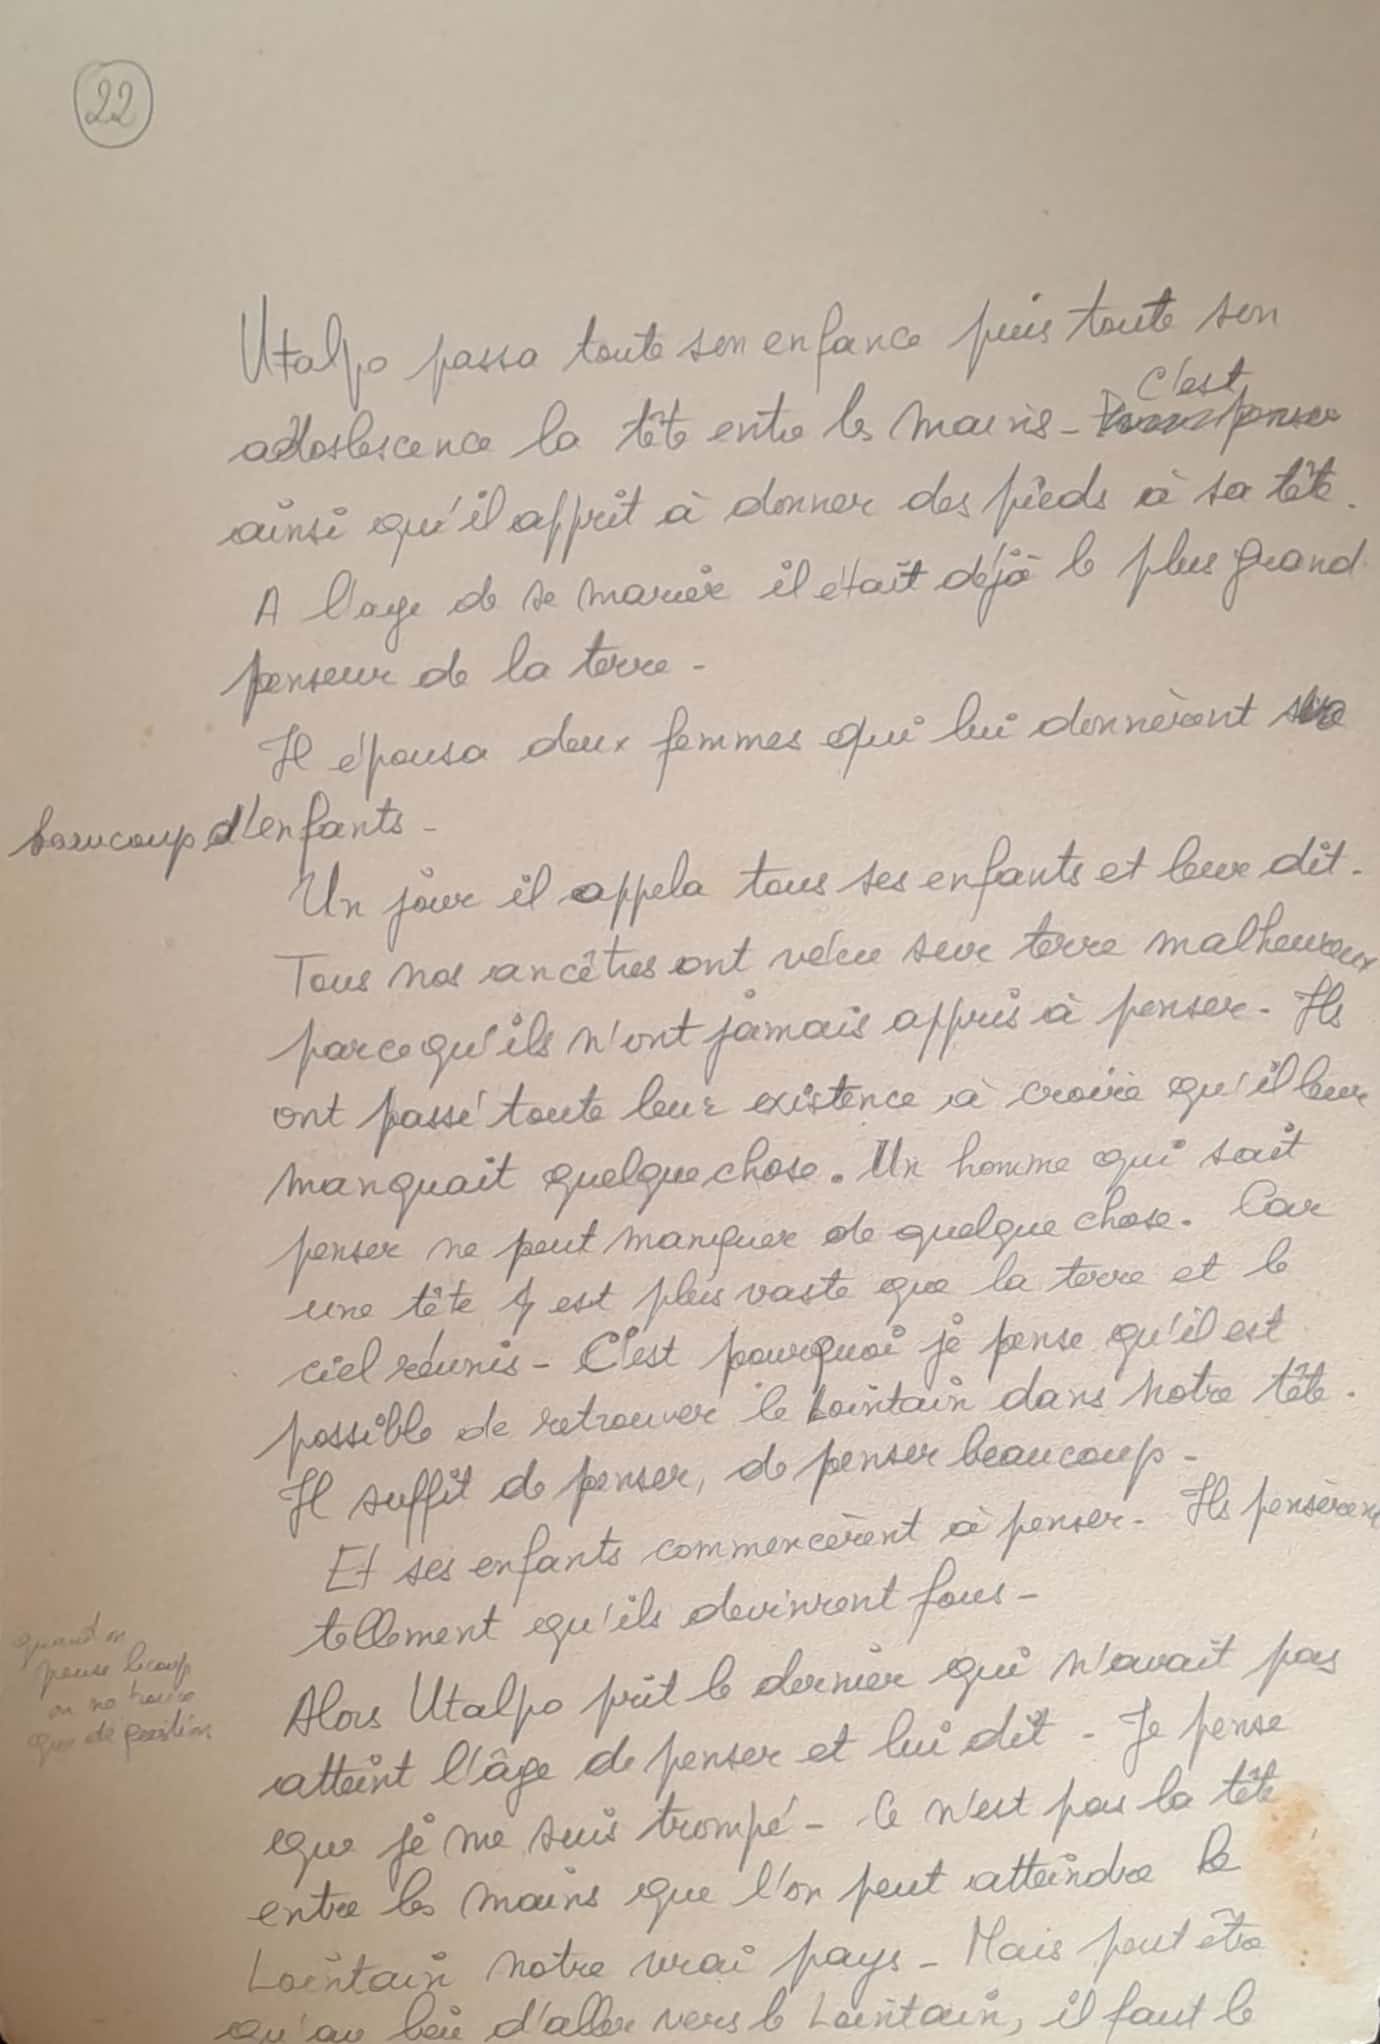 22
Utalpo passa toute son enfance puis toute son
adoslescence la tête entre les mains - C'est
ainsi qu'il apprit à donner des pieds à sa tête.
A l'age de se marier il était déjà le plus grand
penseur de la terre -
Il épousa deux femmes qui lui donnèrent
beaucoup d'enfants -
Un jour il appela tous ses enfants et leur dit -
Tous nos ancêtres ont vécu sur terre malheureux
parcequ'ils n'ont jamais appris à penser - Ils
ont passé toute leur existence à croire qu'il leur
manquait quelquechose. Un homme qui sait
penser ne peut manquer de quelque chose. Car
une tête est plus vaste que la terre et le
ciel réunis - C'est pourquoi je pense qu'il est
possible de retrouver le Lointain dans notre tête.
Il suffit de penser, de penser beaucoup -
Et ses enfants commencèrent à penser - Ils pensèrent
tellement qu'ils devinrent fous -
quand on
pense bcoup
on ne trouve
que de questions
Alors Utalpo prit le dernier qui n'avait pas
atteint l'âge de penser et lui dit - Je pense
que je me suis trompé - Ce n'est pas la tête
entre les mains que l'on peut atteindre le
Lointain notre vrai pays - Mais peut être
qu'au lieu d'aller vers le Lointain, il faut le